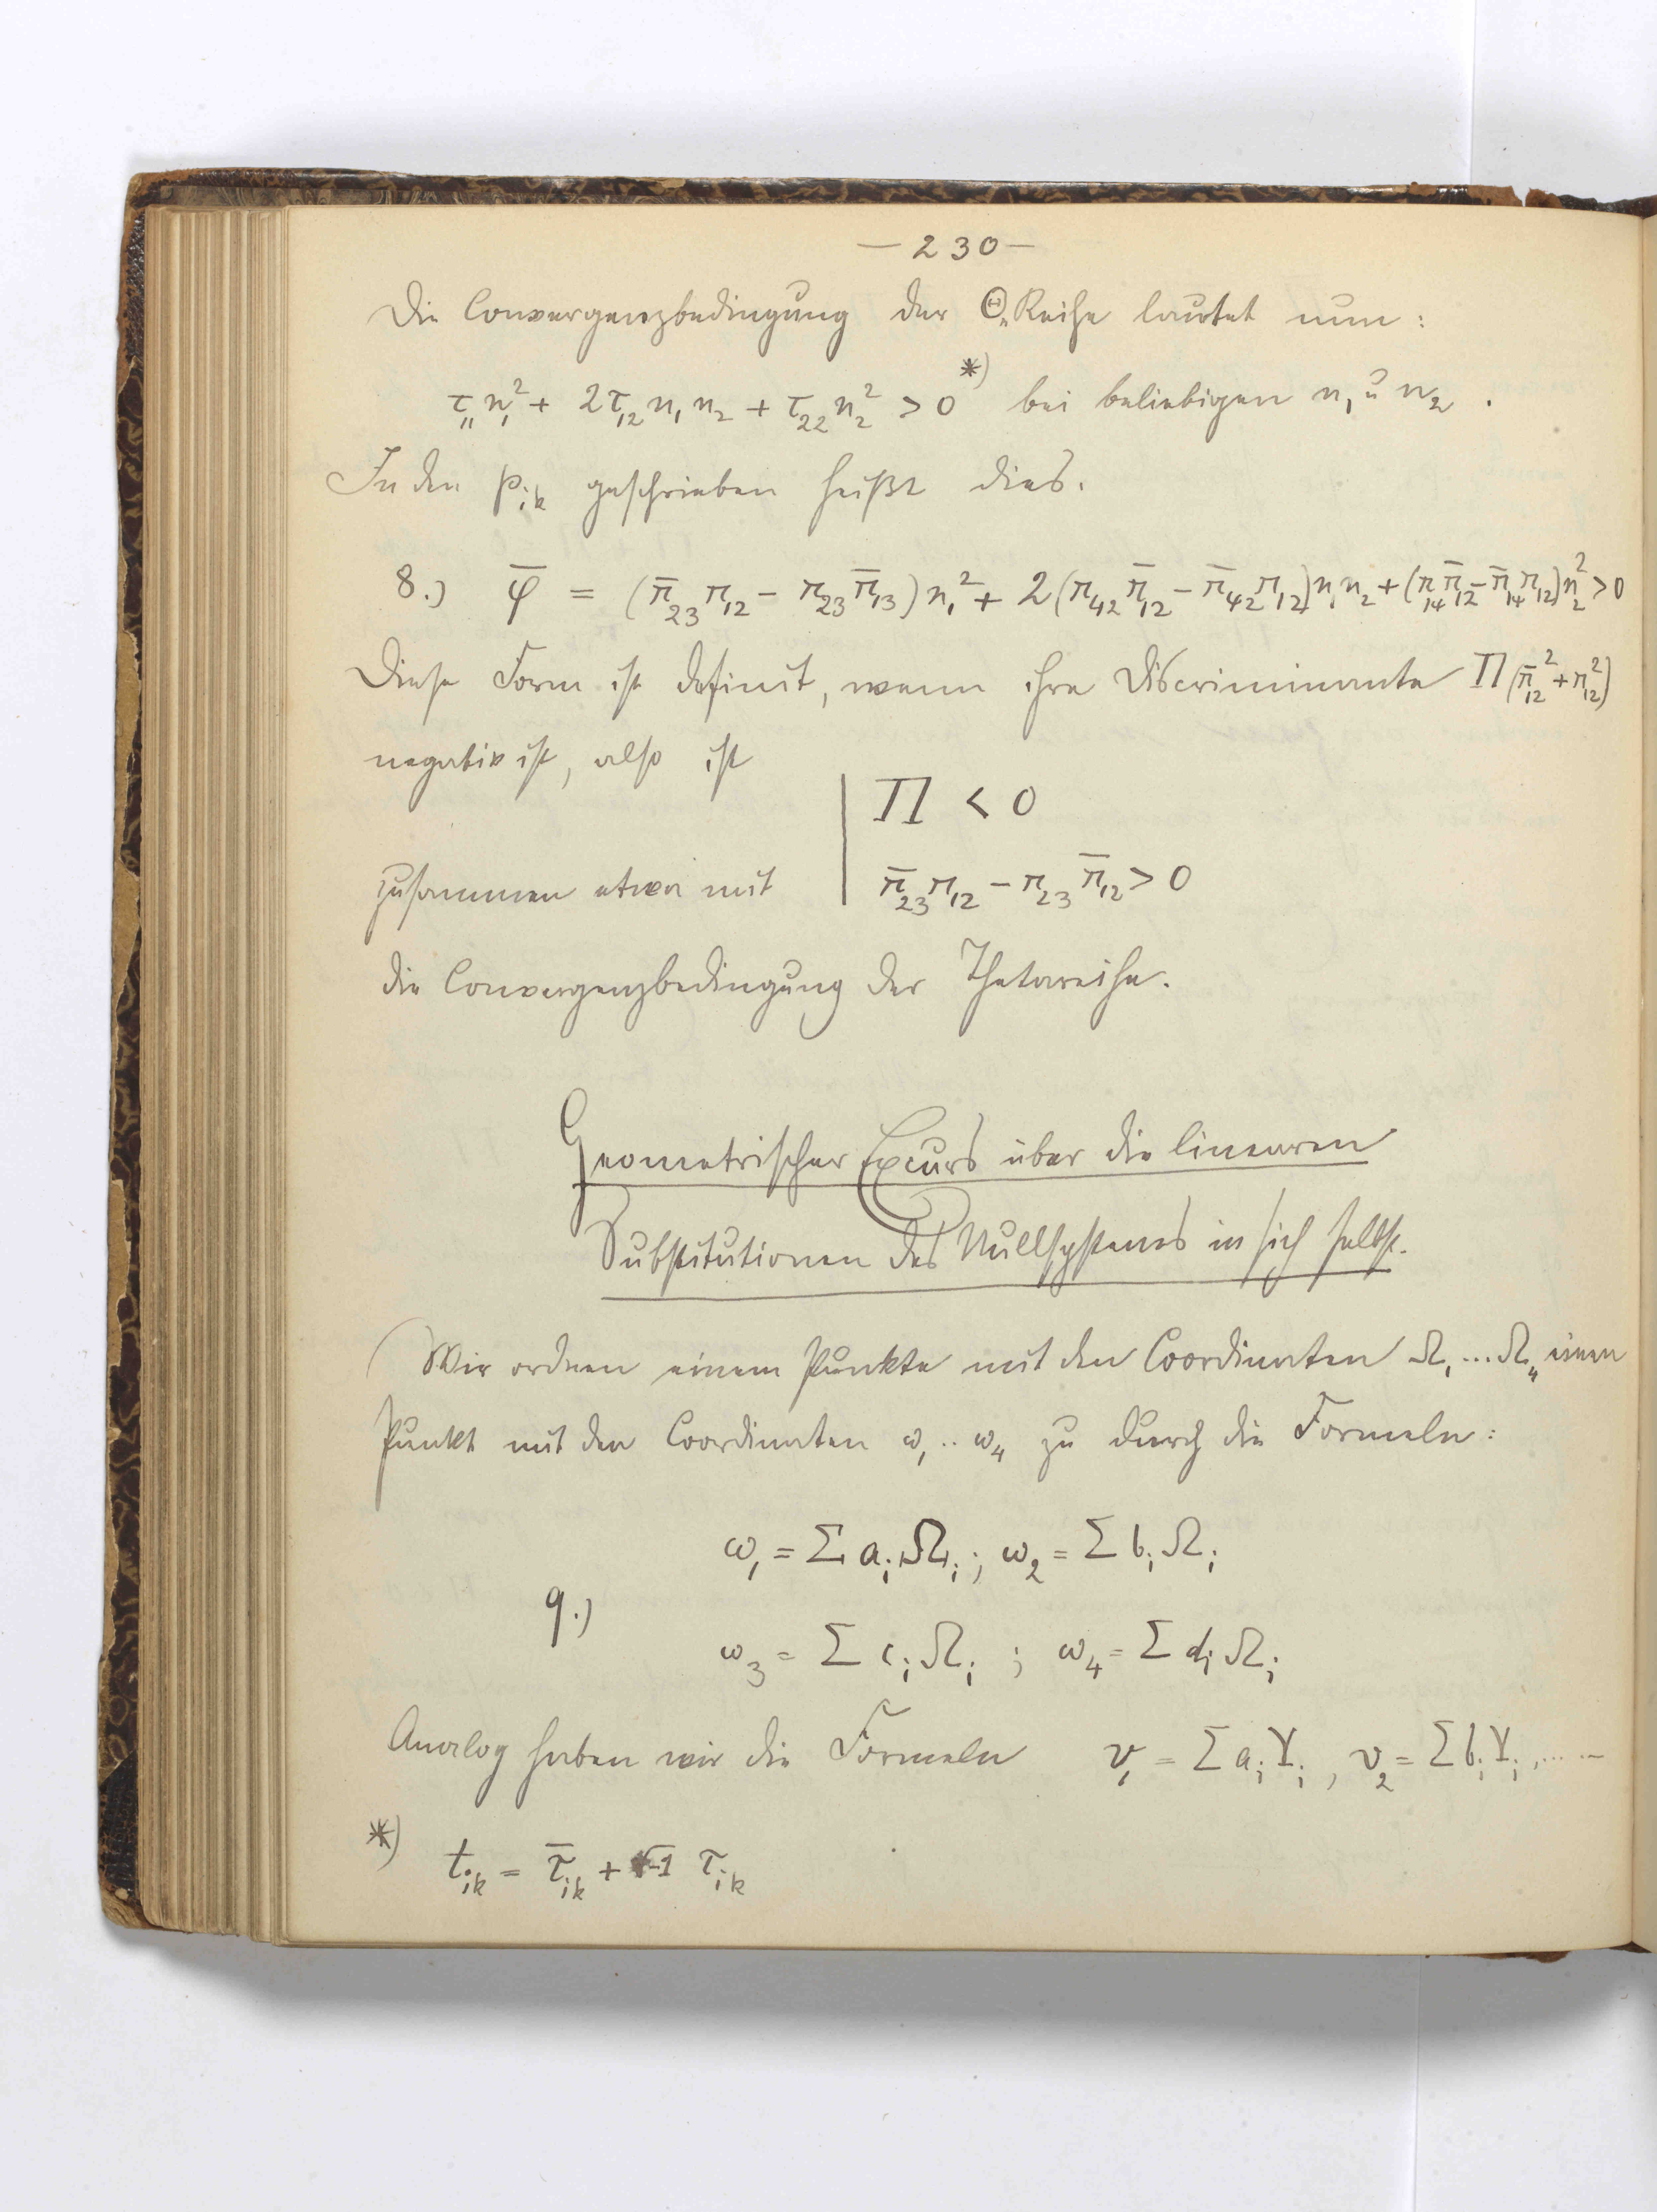 — 230 —
Die Convergenzbedingung der Θ-Reihe lautet nun:
τ₁₁n₁² + 2τ₁₂n₁n₂ + τ₂₂n₂² > 0 *) bei beliebigen n₁ u n₂ .
In den p_ik geschrieben heißt dies.
8.) φ̄ = (π̄₂₃π₁₂ − π₂₃π̄₁₃)n₁² + 2(π₄₂π̄₁₂ − π̄₄₂π₁₂)n₁n₂ + (π₁₄π̄₁₂ − π̄₁₄π₁₂)n₂² > 0
Diese Form ist definit, wenn ihre Discriminante Π(π̄₁₂² + π₁₂²)
negativ ist, also ist
Π < 0
zusammen etwa mit π̄₂₃π₁₂ − π₂₃π̄₁₂ > 0
die Convergenzbedingung der Thetareihe.
Geometrischer Excurs über die linearen
Substitutionen des Nullsystems in sich selbst.
Wir ordnen einem Punkte mit den Coordinaten Ω₁ ... Ω₄ einen
Punkt mit den Coordinaten ω₁ .. ω₄ zu durch die Formeln:
ω₁ = Σ a_i Ω_i ; ω₂ = Σ b_i Ω_i
9.)
ω₃ = Σ c_i Ω_i ; ω₄ = Σ d_i Ω_i
Analog haben wir die Formeln v₁ = Σ a_i Y_i , v₂ = Σ b_i Y_i , .....
*) t_ik = τ̄_ik + √-1 τ_ik